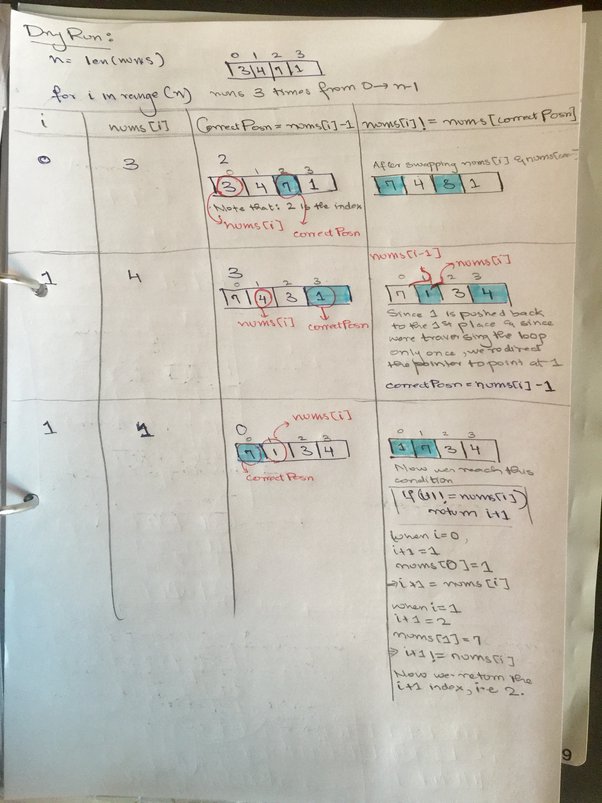 Dry Run:
n= len(nums)
0 1 2 3
3 4 7 1
for i in range (n) runs 3 times from 0→ n-1
i nums[i] CorrectPosn = nums[i]-1 nums[i]!= nums[correctPosn]
0 3 2
0 1 2 3
3 4 7 1
Note that: 2 is the index
nums[i]
correctPosn
After swapping nums[i] &
7 4 3 1
1 4 3
0 1 2 3
7 4 3 1
nums[i] correctPosn
nums[i-1]
nums[i]
0 1 2 3
7 1 3 4
Since 1 is pushed back
to the 1st place & since
we're traversing the loop
only once, we redirect
the pointer to point at 1
correctPosn = nums[i]-1
1 1 0
nums[i]
0 1 2 3
7 1 3 4
correctPosn
0 1 2 3
1 7 3 4
Now we reach this
condition
if (i+1 != nums[i])
return i+1
when i=0,
i+1=1
nums[0]=1
→ i+1 = nums[i]
when i=1
i+1=2
nums[1]=7
→ i+1 != nums[i]
Now we return the
i+1 index, i.e 2.
9